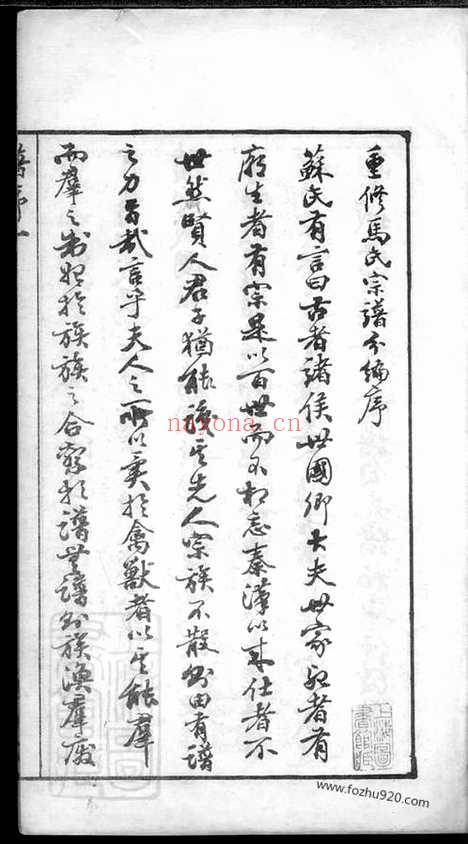 重修馬氏宗譜分編序
蘇氏有言曰古者諸侯世國卿大夫世家死者有
廟生者有宗是以百世而不相忘秦漢以來仕者不
世然賢人君子猶能識其先人宗族不散則由有譜
之力言乎夫人之所以異於禽獸者以其能群
而群之制始於族族之合寄於譜無譜則族渙群廢
舊序一
nayona.cn
上海圖書館
www.fozhu920.com